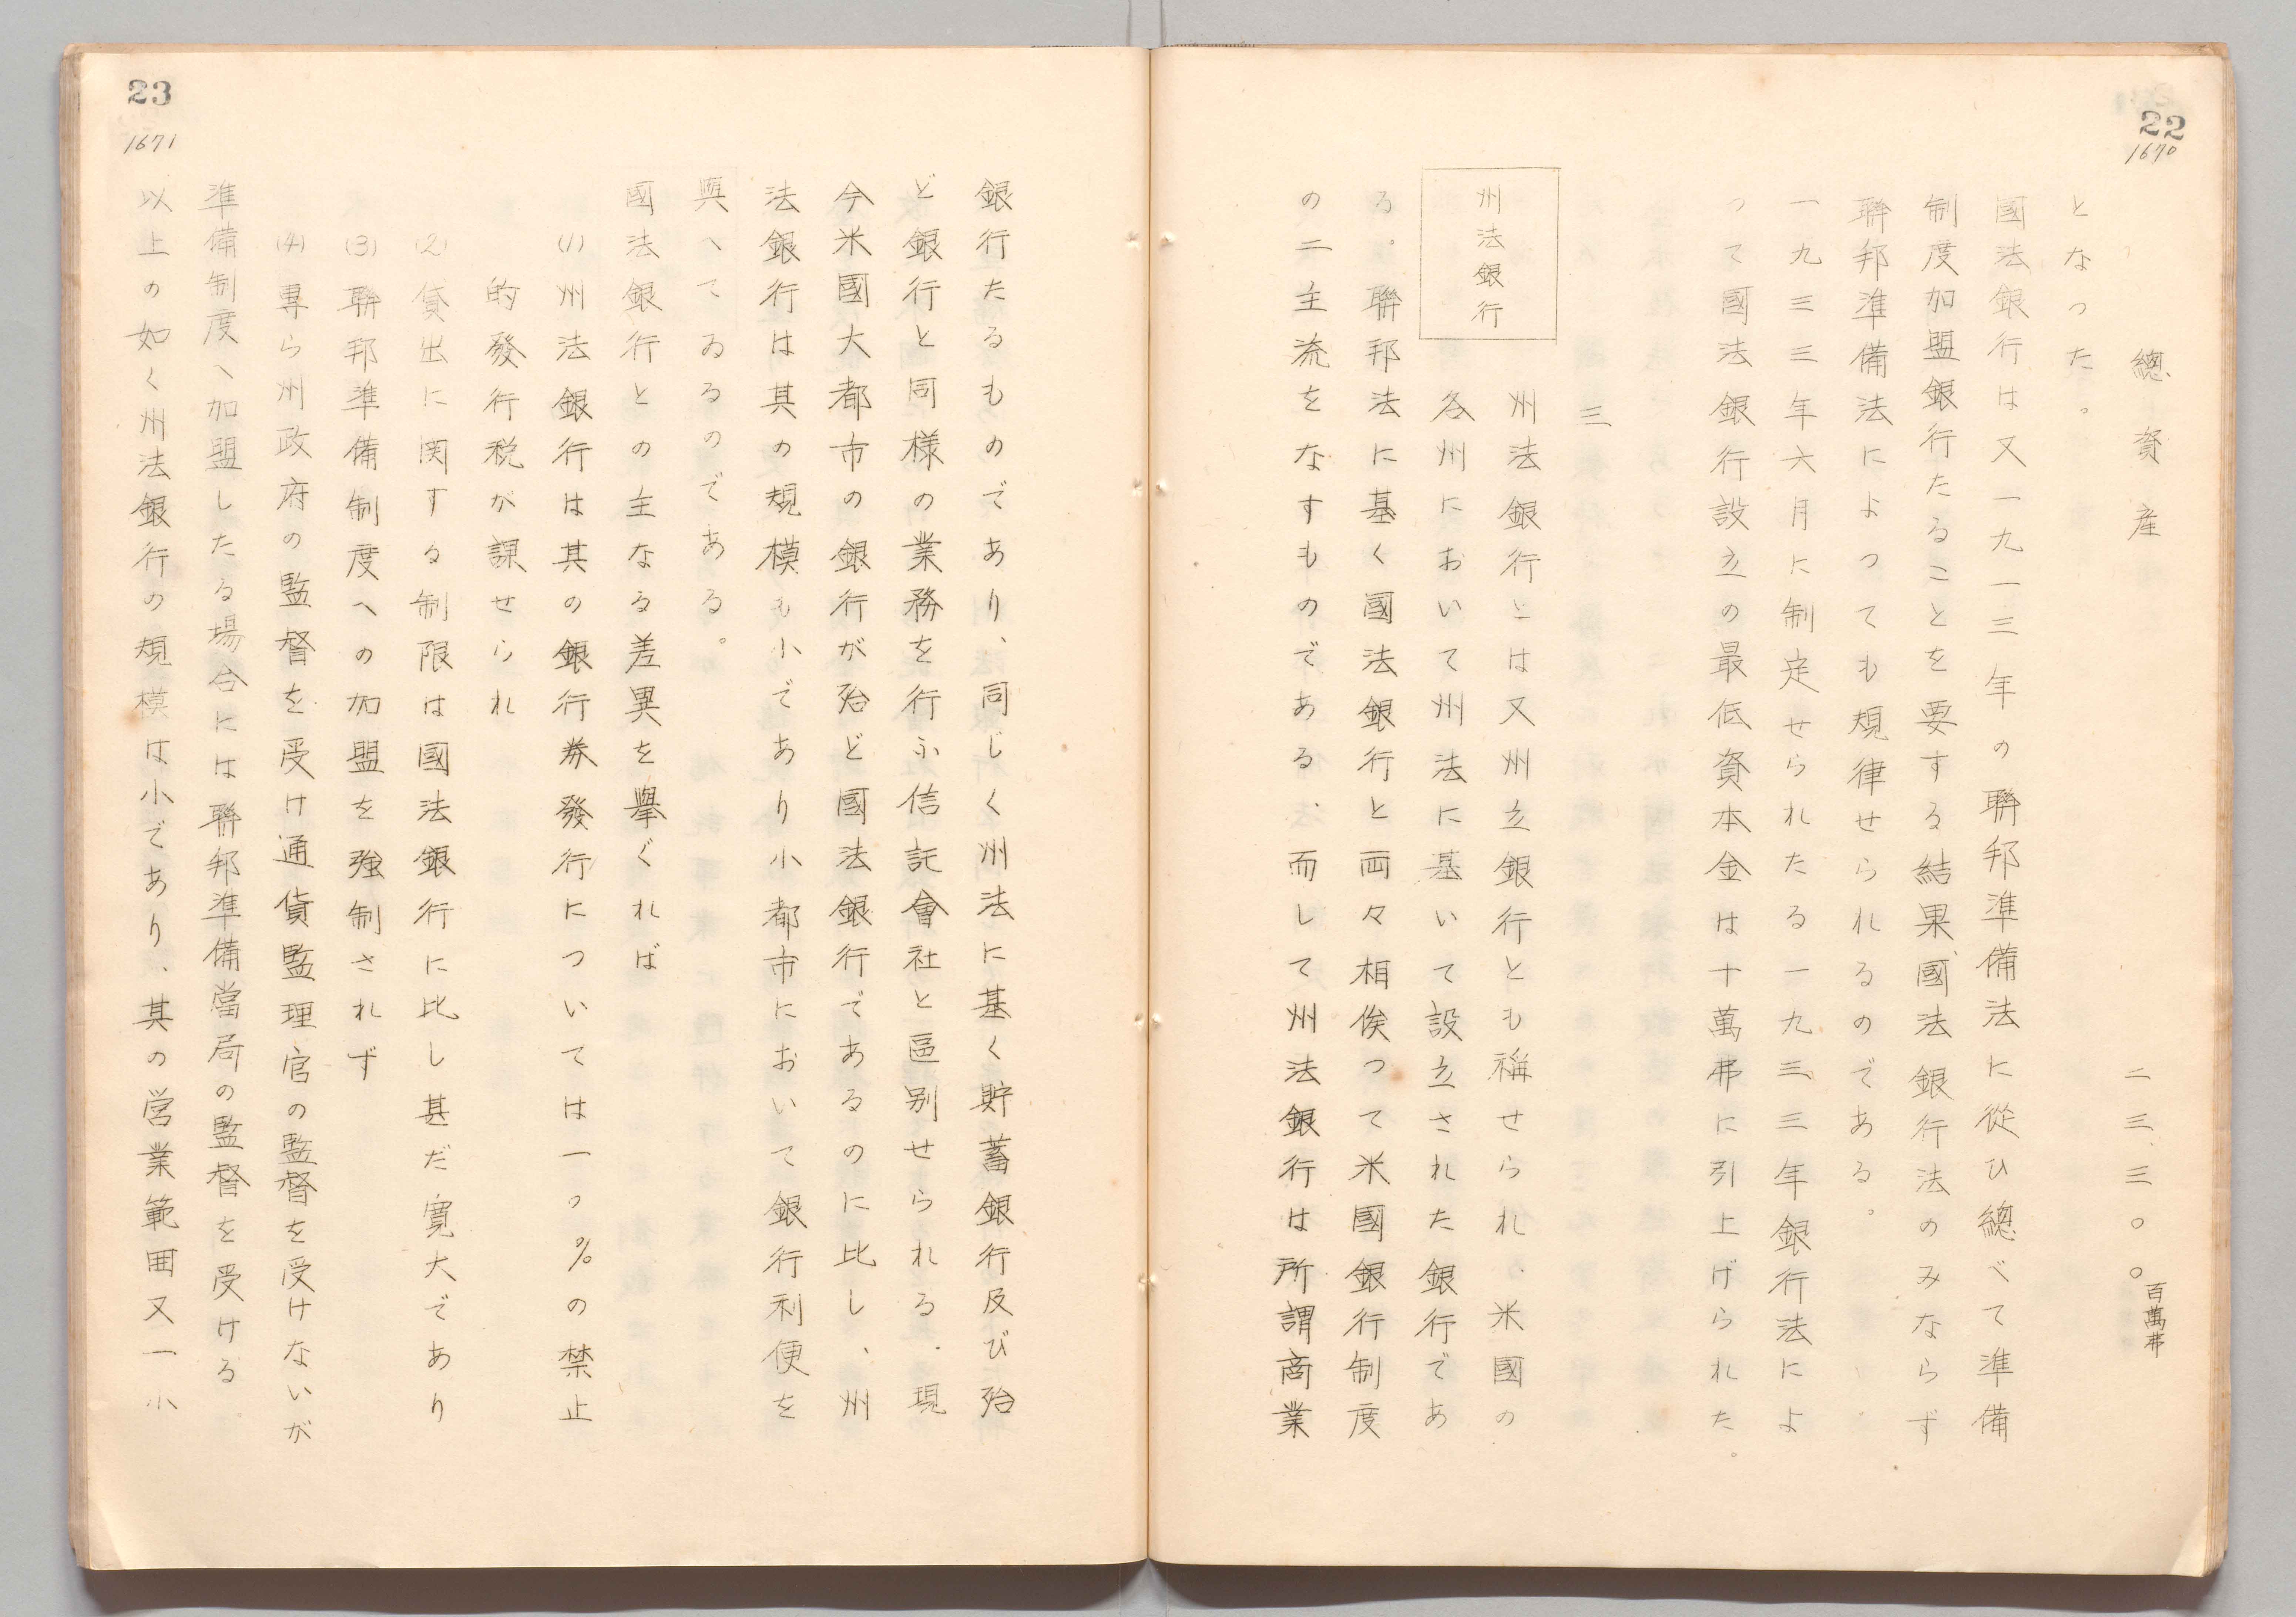 22
1670
總資産 二三、三〇〇百萬弗
となつた。
國法銀行は又一九一三年の聯邦準備法に從ひ總べて準備
制度加盟銀行たることを要する結果、國法銀行法のみならず
聯邦準備法によつても規律せられるのである。
一九三三年六月に制定せられたる一九三三年銀行法によ
つて國法銀行設立の最低資本金は十萬弗に引上げられた。
三
州法銀行
州法銀行とは又州立銀行とも稱せられる。米國の
各州において州法に基いて設立された銀行であ
る。聯邦法に基く國法銀行と両々相俟つて米國銀行制度
の二主流をなすものである、而して州法銀行は所謂商業
23
1671
銀行たるものであり、同じく州法に基く貯蓄銀行及び殆
ど銀行と同様の業務を行ふ信託會社と區別せられる。現
今米國大都市の銀行が殆ど國法銀行であるのに比し、州
法銀行は其の規模も小であり小都市において銀行利便を
與へてゐるのである。
國法銀行との主なる差異を擧ぐれば
(1)州法銀行は其の銀行券發行については一〇%の禁止
的發行税が課せられ
(2)貸出に関する制限は國法銀行に比し甚だ寛大であり
(3)聯邦準備制度への加盟を強制されず
(4)専ら州政府の監督を受け通貨監理官の監督を受けないが
準備制度へ加盟したる場合には聯邦準備當局の監督を受ける。
以上の如く州法銀行の規模は小であり、其の営業範囲又一小